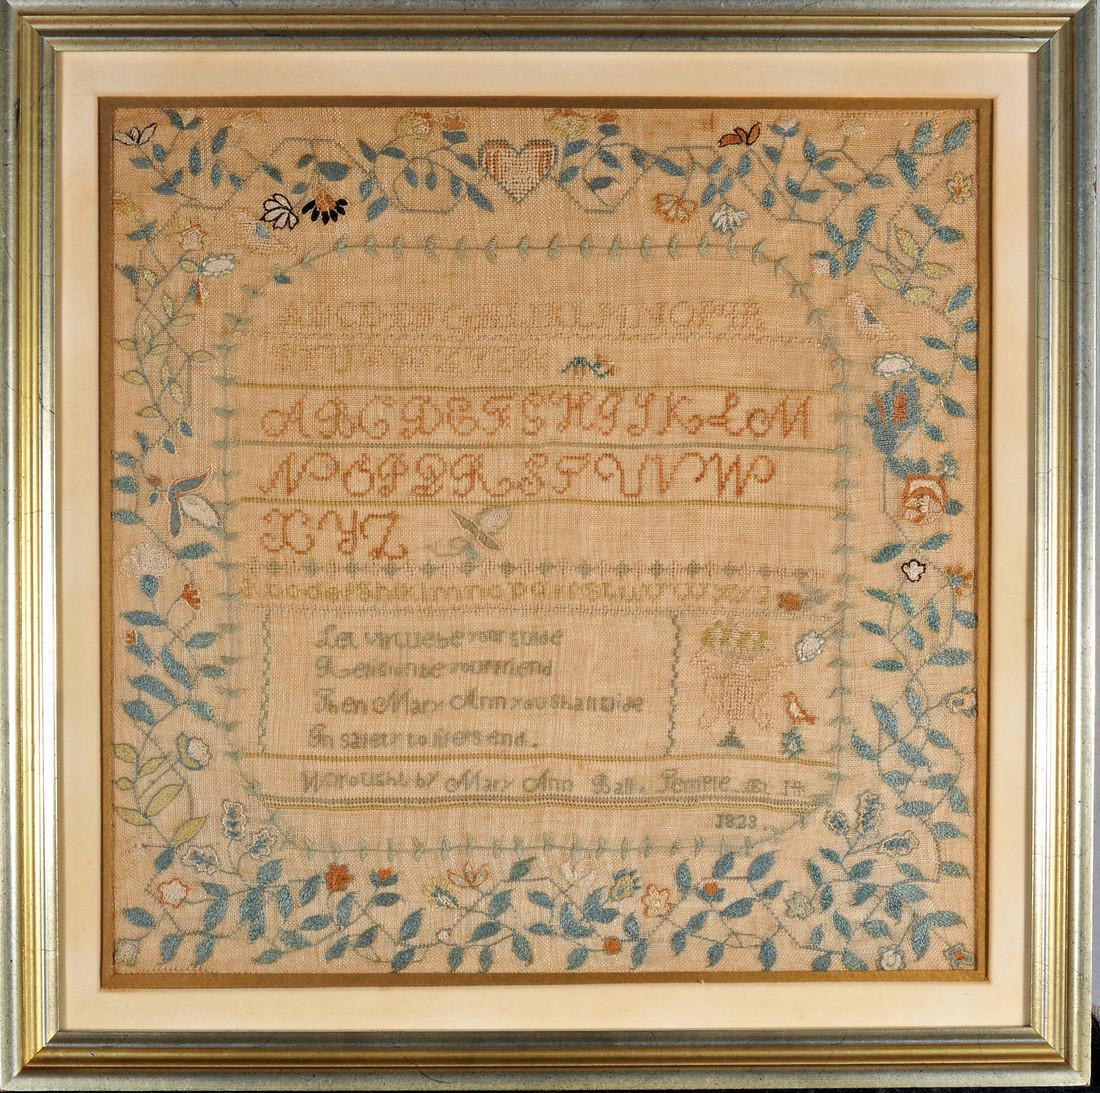 ABCDEFGHIJKLMNOPQR
STUVWXYZ
ABCDEFGHIJKLM
NOPQRSTUVW
XYZ
Let virtue be your guide
Religion be your friend
Then Mary Ann you shall glide
In safety to lifers end.
Wrought by Mary Ann Ball. Temple Æt 14
1823